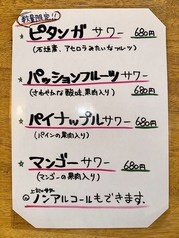 数量限定!!
★ピタンガサワー 680円
(石垣産、アセロラみたいなフルーツ)
★パッションフルーツサワー
(さわやかな酸味、果肉入り) 680円
★パイナップルサワー 680円
(パインの果肉入り)
★マンゴーサワー 680円
(マンゴーの果肉入り)
◎ノンアルコールもできます。